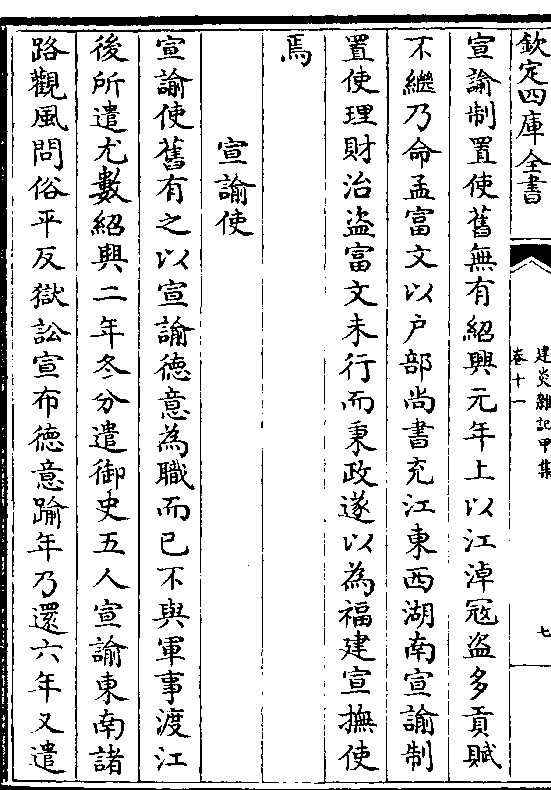 欽定四庫全書
建炎雜記甲集
卷十一
七
宣諭制置使舊無有紹興元年上以江淖冦盗多貢賦
不繼乃命孟富文以户部尚書充江東西湖南宣諭制
置使理財治盗富文未行而秉政遂以為福建宣撫使
焉
宣諭使
宣諭使舊有之以宣諭德意為職而已不與軍事渡江
後所遣尤數紹興二年冬分遣御史五人宣諭東南諸
路觀風問俗平反獄訟宣布德意踰年乃還六年又遣